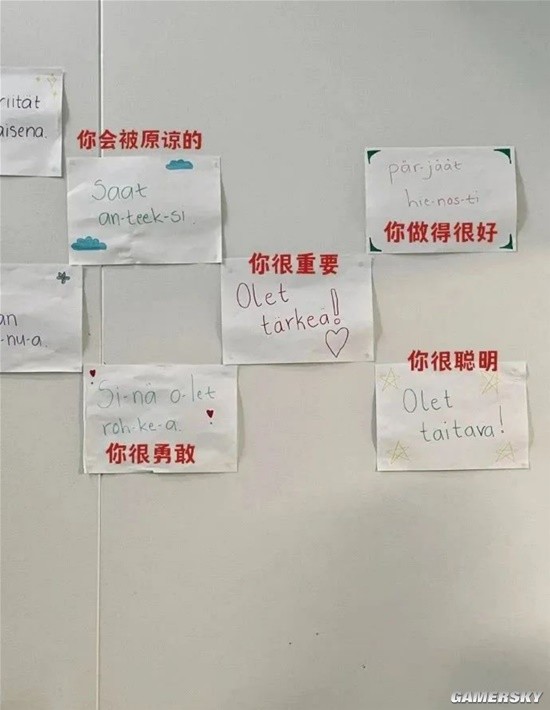 riität
aisena.
你会被原谅的
Saat
an-teek-si.
pär-jäät
hie-nos-ti
你做得很好
你很重要
Olet
tärkeä!
an
-nu-a.
Si-nä o-let
roh-ke-a.
你很勇敢
你很聪明
Olet
taitava!
GAMERSKY